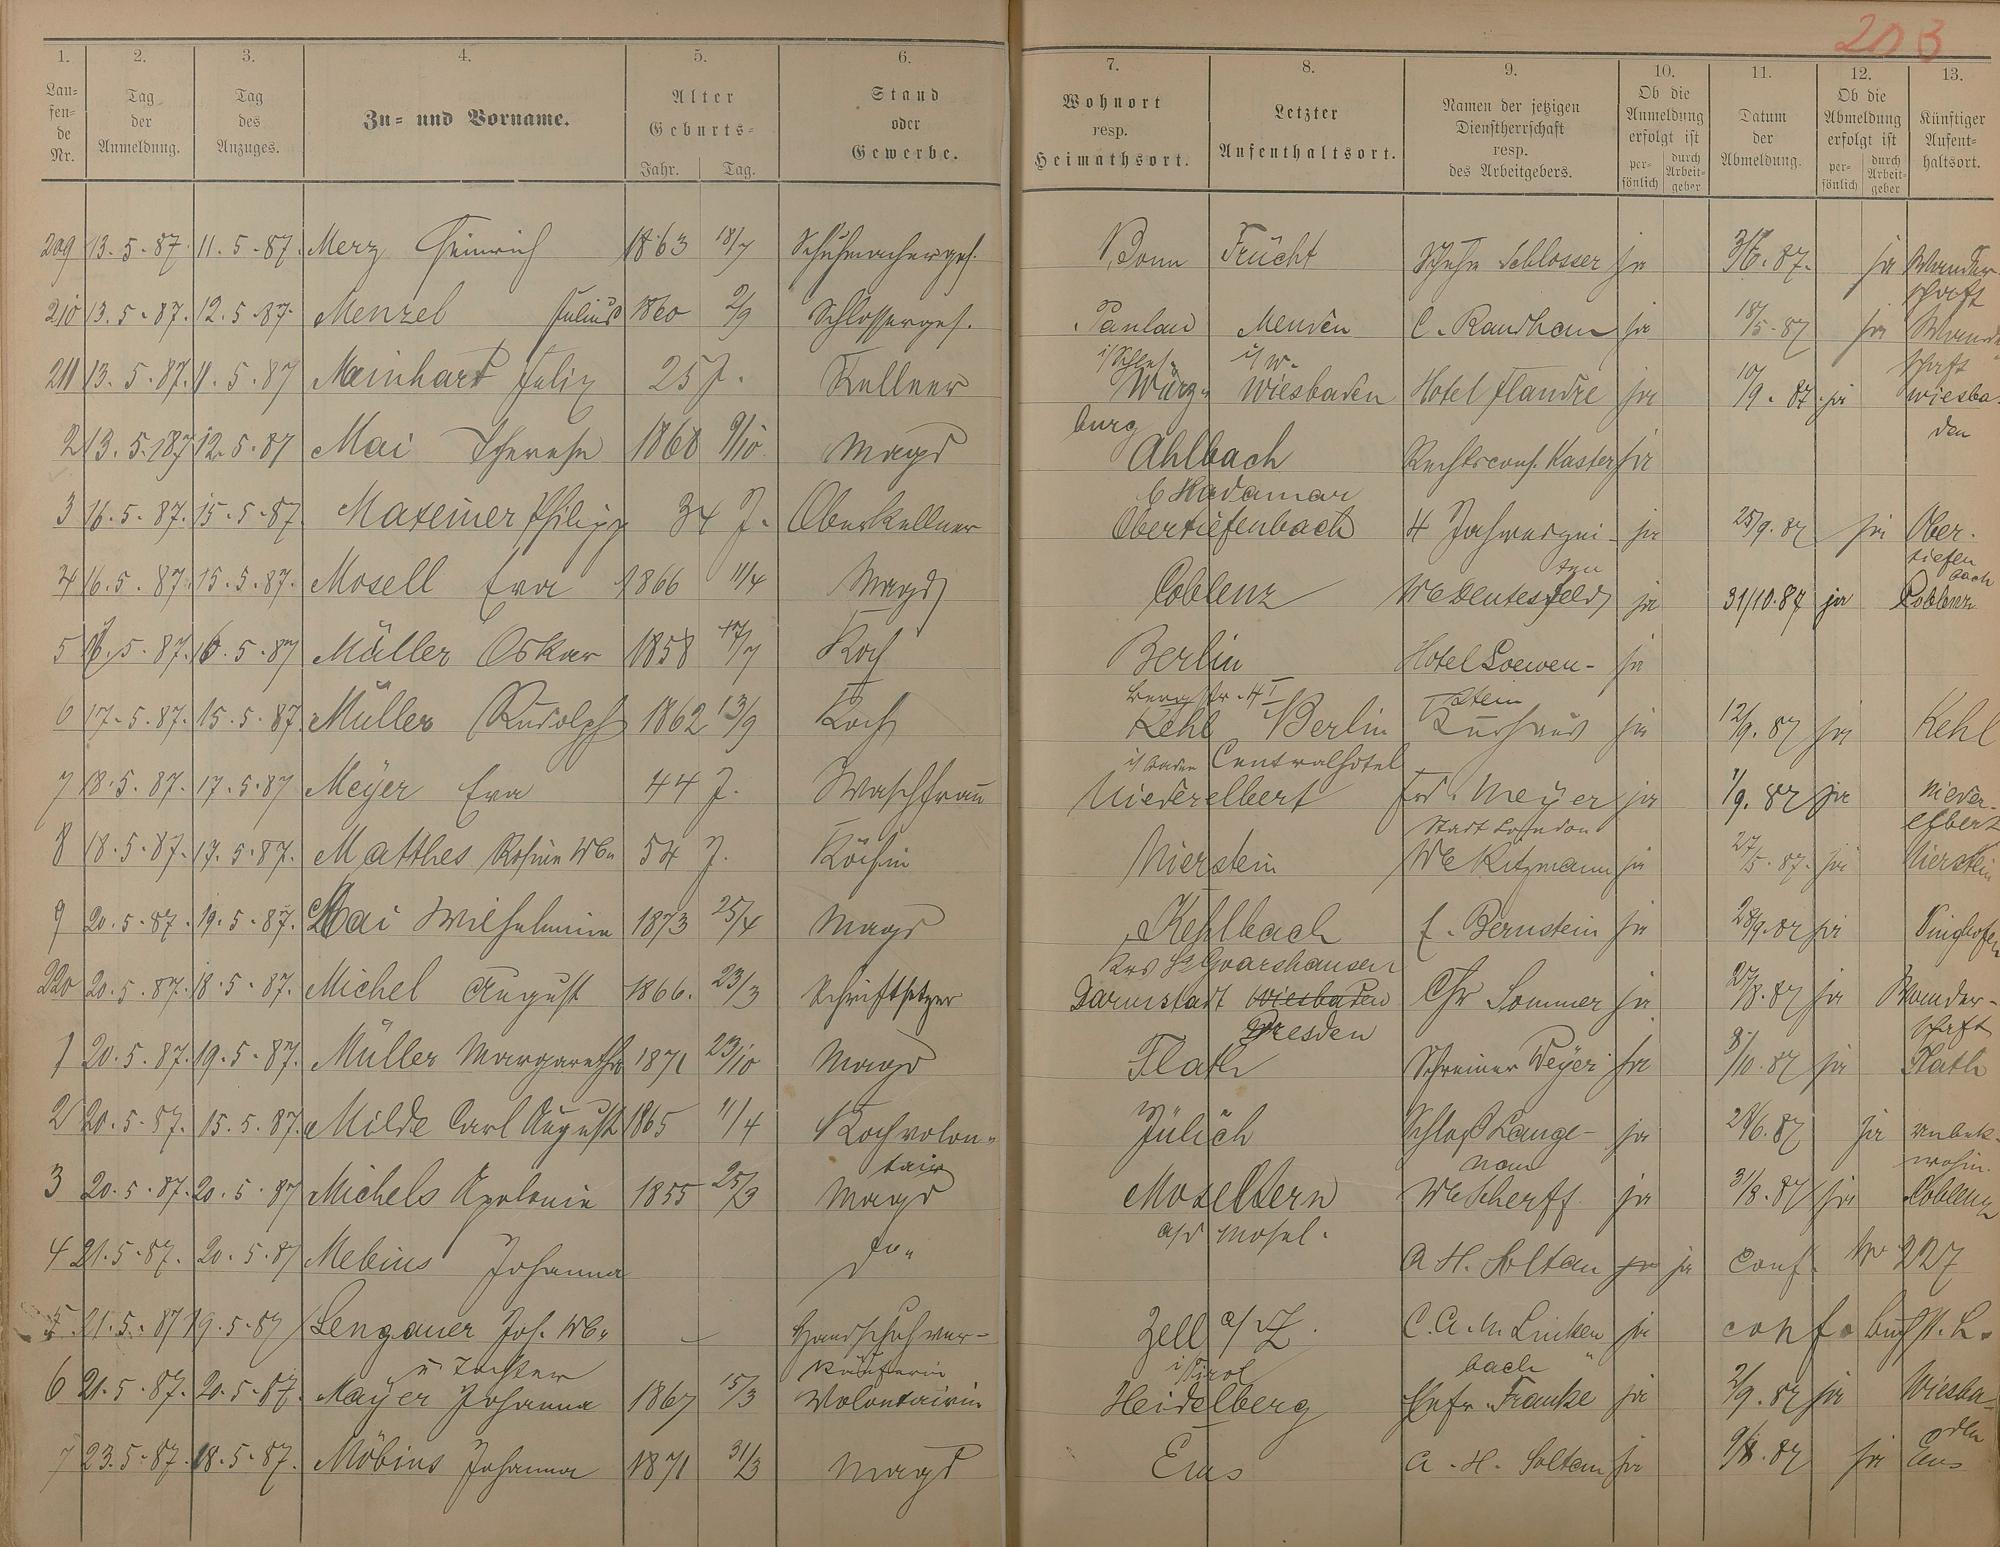 203
1. 2. 3. 4. 5. 6. 7. 8. 9. 10. 11. 12. 13.
Laufende Nr. Tag der Anmeldung. Tag des Anzuges. Zu- und Vorname. Alter Geburts- Jahr. Tag. Stand oder Gewerbe. Wohnort resp. Heimathsort. Letzter Aufenthaltsort. Namen der jetzigen Dienstherrschaft resp. des Arbeitgebers. Ob die Anmeldung erfolgt ist persönlich durch Arbeitgeber Datum der Abmeldung. Ob die Abmeldung erfolgt ist persönlich durch Arbeitgeber Künftiger Aufenthaltsort.
209 13.5.87. 11.5.87. Merz Heinrich 1863 18/7 Schuhmacherges. Bonn Frücht Schuhm Schlosser ja 3/6.87. ja Wanderschaft
210 13.5.87. 12.5.87. Menzel Julius 1860 2/9 Schlosserges. i/Schles. i/W. ja 18/5.87 ja
211 13.5.87. 11.5.87 Meinhart Felix 25 J. Kellner Würzburg Wiesbaden Hotel Flandre ja 10/9.87 ja Wiesbaden
2 13.5.187 12.5.87 Mai Therese 1868 9/10 Magd Ahlbach b Hadamar Rechtscons. Kaster ja
3 16.5.87. 15.5.87. Maxeiner Philipp 34 J. Oberkellner Obertiefenbach 4 Jahreszeiten ja 25/9.87 ja Obertiefenbach
4 16.5.87. 15.5.87. Mosell Eva 1866 11/4 Magd Coblenz ja 31/10.87 ja Coblenz
5 16.5.87. 16.5.87 Müller Oskar 1858 17/7 Koch Berlin Hotel Loewenstein ja
6 17.5.87. 15.5.87. Müller Rudolph 1862 13/9 Koch Kehl i/Baden Berlin Centralhotel Kurhaus ja 12/9.87 ja Kehl
7 18.5.87. 17.5.87 Meÿer Eva 44 J. Waschfrau Niederelbert Frd. Meÿer Stadt London ja 1/9.87 ja Niederelbert
8 18.5.87. 17.5.87. Matthes Rosine Wb. 54 J. Köchin Nierstein We Ritzmann ja 27/5.87. ja Nierstein
9 20.5.87. 19.5.87. Mai Wilhelmine 1873 25/4 Magd Kehlbach Krs St Goarshausen E. Bernstein ja 28/9.87 ja
220 20.5.87. 18.5.87. Michel August 1866. 23/3 Schriftsetzer Darmstadt Wiesbaden Dresden Chr Sommer ja 27/8.87 ja Wanderschaft
1 20.5.87. 19.5.87. Müller Margaretha 1871 23/10 Magd Flath Schreiner Weÿer ja 8/10.87 ja Flath
2 20.5.87. 15.5.87. Milde Carl August 1865 11/4 Kochvolontair Jülich Schloß Langenau ja 28/6.87 ja unbek. wohin.
3 20.5.87. 20.5.87 Michels Apolonia 1855 25/3 Magd Moselkern a/d Mosel. We Scherff ja 31/8.87 ja Coblenz
4 21.5.87. 20.5.87 Mebius Johanna do. A. H. Soltau ja ja conf. No 227
5 21.5.87 19.5.87 Lengauer Jos. Wb. u. Tochter – Handschuhverkäuferin Zell a/Z. i/Tirol C. A. M. Linkenbach ja conf. Buchst. L.
6 21.5.87. 20.5.87. Maÿer Johanna 1867 15/3 Volontairin Heidelberg Franke ja 2/9.87 ja Wiesbaden
7 23.5.87. 18.5.87. Möbius Johanna 1871 31/3 Magd Ems A. H. Soltau ja 9/8.87 ja Ems